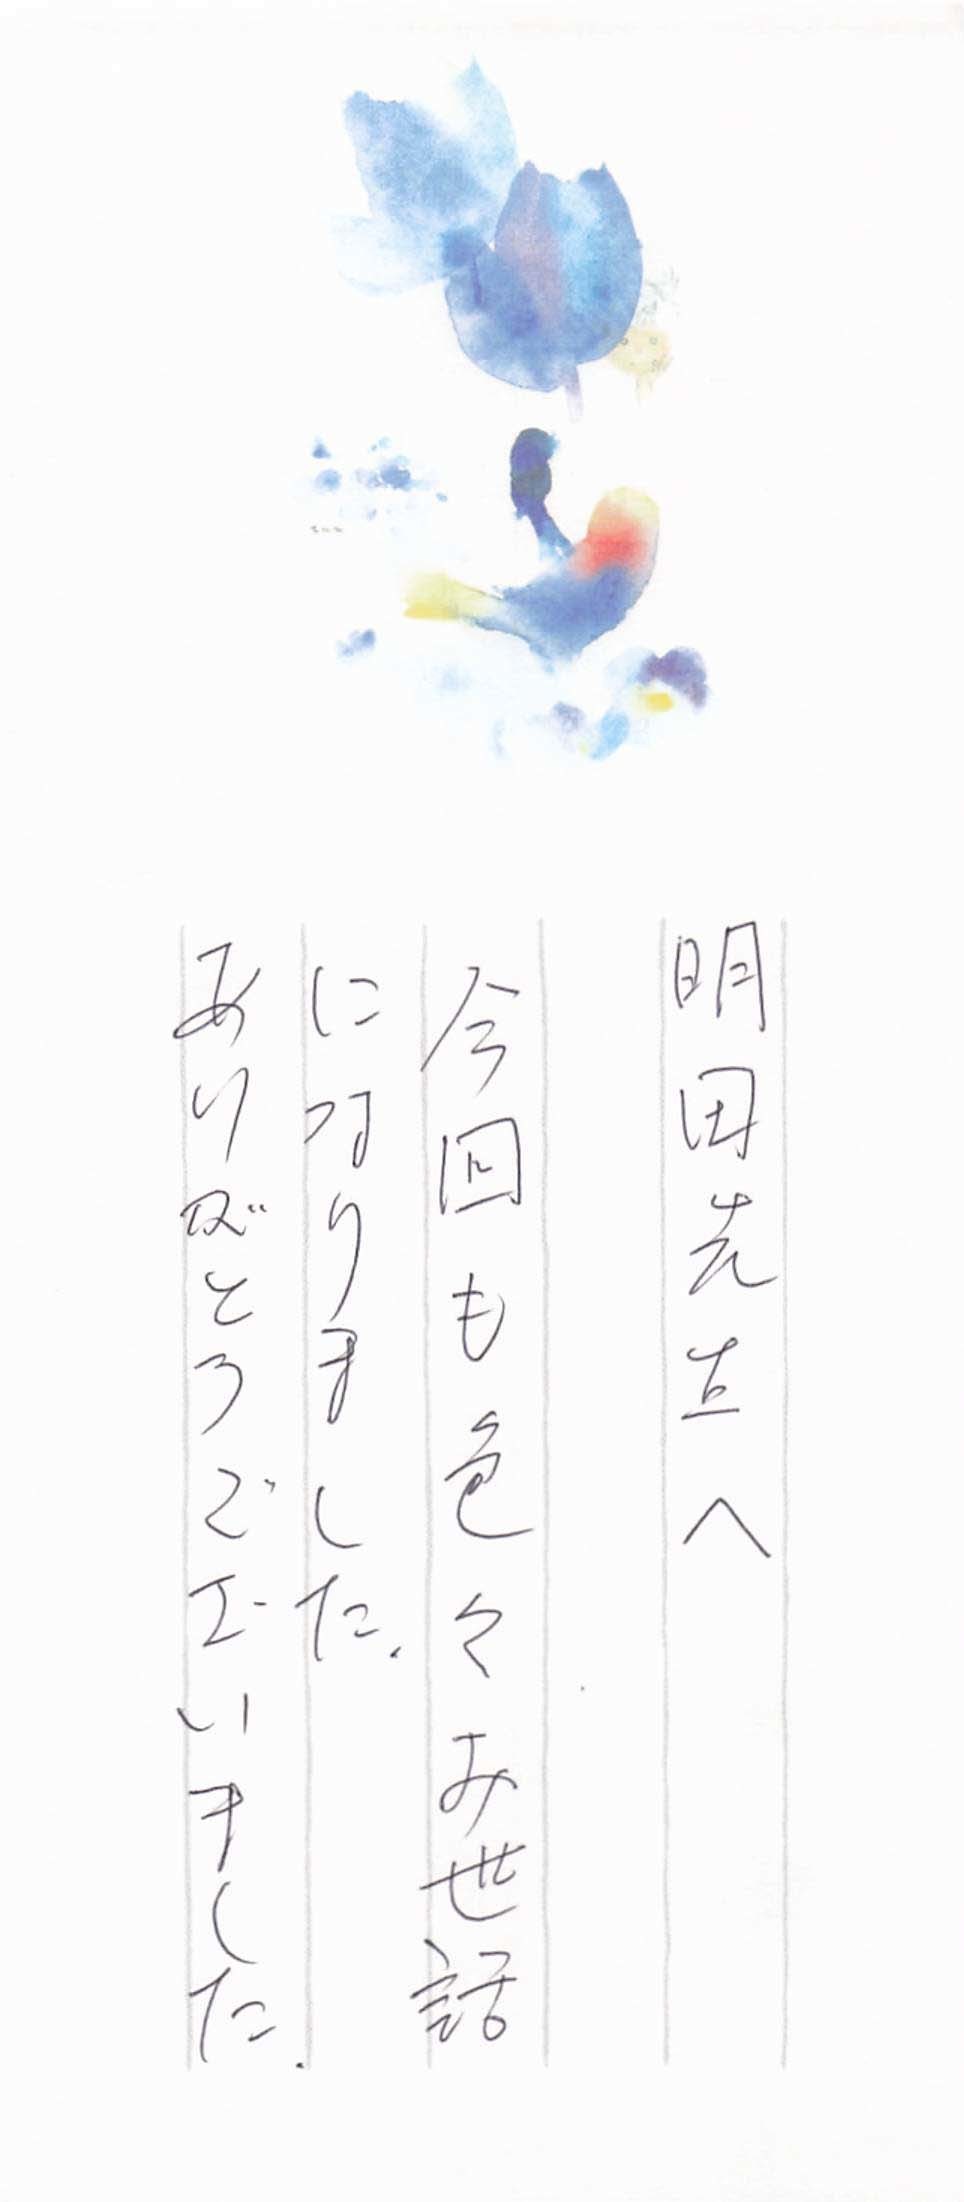 明田先生へ
今回も色々お世話
になりました.
ありがとうございました.